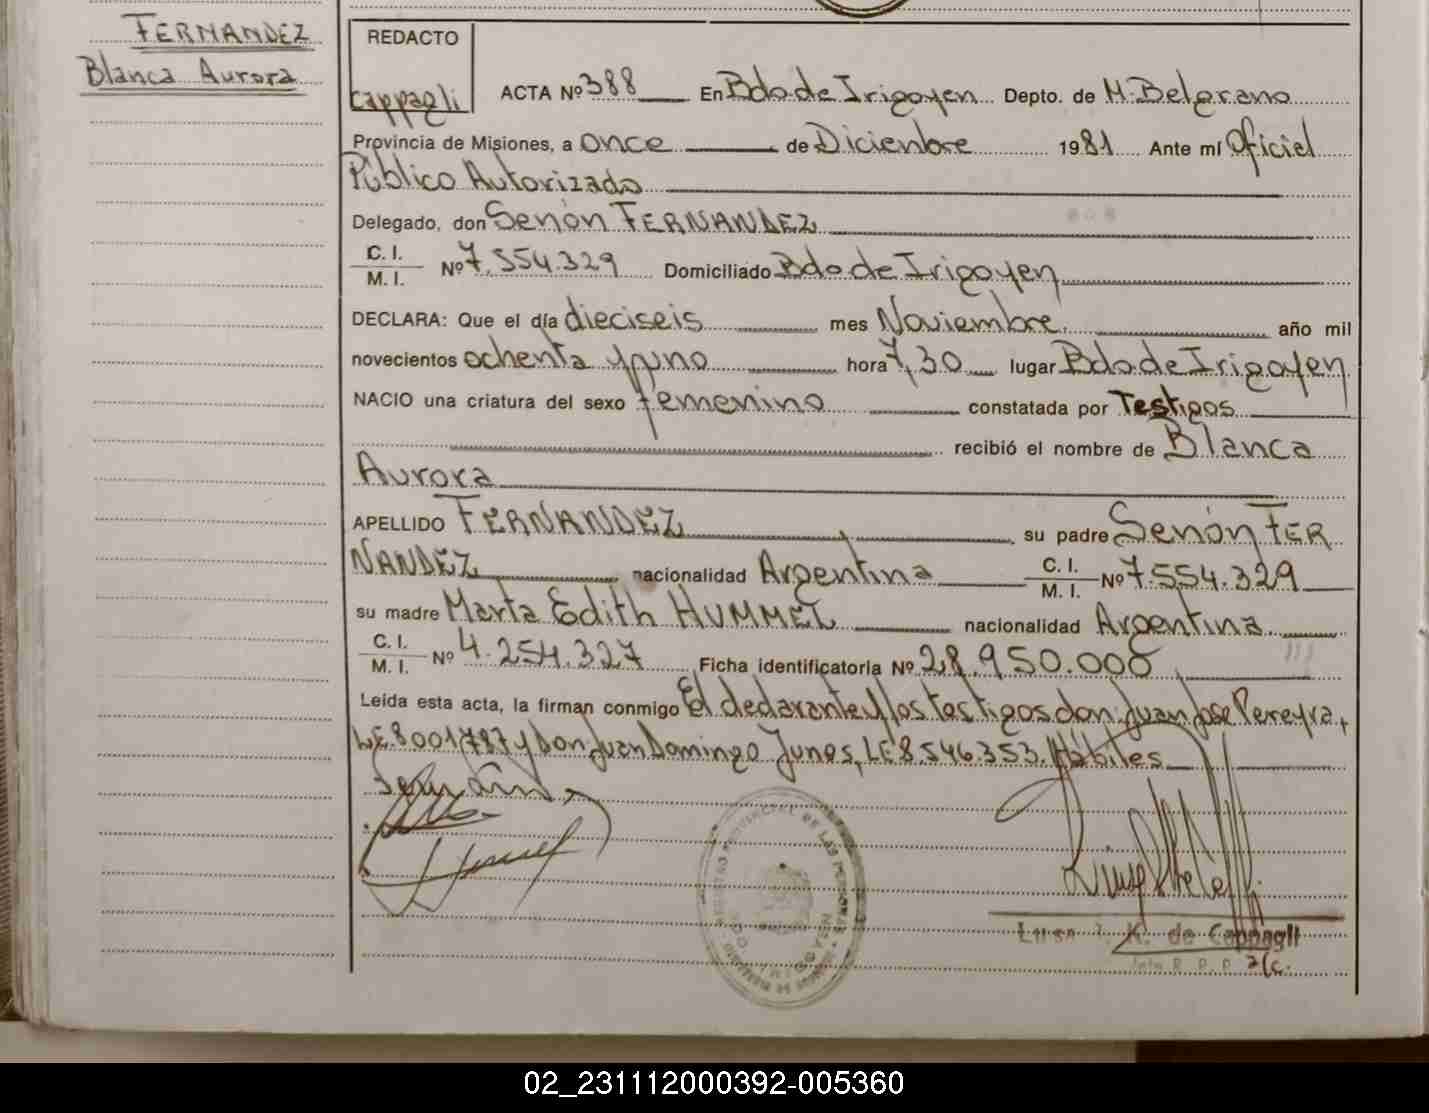 FERNANDEZ
Blanca Aurora
REDACTO
Cappagli
ACTA Nº 388 En Bdo de Irigoyen Depto. de M. Belgrano
Provincia de Misiones, a once de Diciembre 1981 Ante mí Oficial
Público Autorizado
Delegado, don Senón FERNANDEZ
C. I.
M. I. Nº 7.554.329 Domiciliado Bdo de Irigoyen
DECLARA: Que el día dieciseis mes Noviembre año mil
novecientos ochenta y uno hora 7,30 lugar Bdo de Irigoyen
NACIO una criatura del sexo femenino constatada por Testigos
recibió el nombre de Blanca
Aurora
APELLIDO FERNANDEZ su padre Senón FER
NANDEZ nacionalidad Argentina C. I.
M. I. Nº 7.554.329
su madre Marta Edith HUMMEL nacionalidad Argentina
C. I.
M. I. Nº 4.254.327 Ficha identificatoria Nº 28.950.000
Leída esta acta, la firman conmigo El declarante y los testigos don Juan Jose Pereyra,
LE 8001787 y Don Juan Domingo Junes, LE 8.546.353. Hábiles
REGISTRO PROVINCIAL DE LAS PERSONAS
Luisa K. de Cappagli
R. P. P. a/c.
02_231112000392-005360